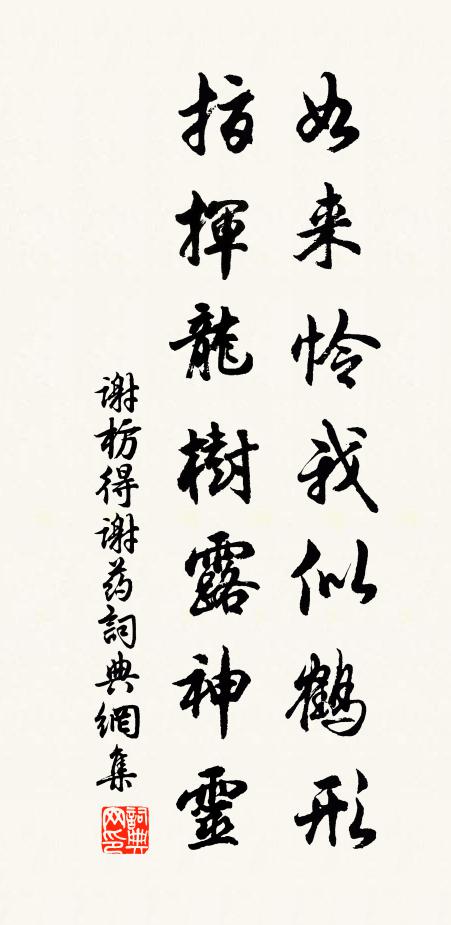 如来怜我似鹤形
指揮龍樹露神靈
谢枋得谢药詞典網集
詞典网印